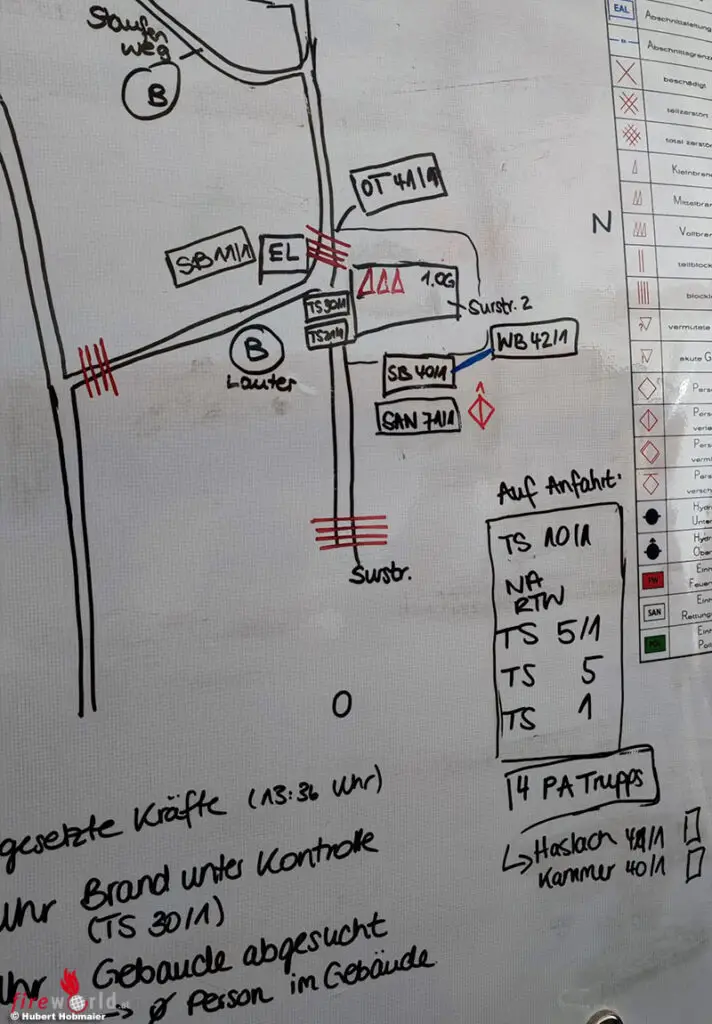 Staufen
weg
B
OT 41/1
SB 11/1
EL
1.OG
TS 30/1
Surstr. 2
TS 21/1
WB 42/1
B
Lauter
SB 40/1
SAN 71/1
N
Surstr.
O
Auf Anfahrt:
TS 10/1
NA
RTW
TS 5/1
TS 5
TS 1
4 PA Trupps
Haslach 41/1
Kammer 40/1
gesetzte Kräfte (13:36 Uhr)
Uhr Brand unter Kontrolle
(TS 30/1)
Uhr Gebäude abgesucht
→ ø Person im Gebäude
EAL
Abschnittsleitung
Abschnittsgrenze
beschädigt
teilzerstört
total zerstör
Kleinbran
Mittelbra
Vollbra
teilblock
blockie
vermutete
akute G
Perso
Perso
verle
Perso
vermi
Pers
versch
Hydr
Unter
Hydr
Ober
FW
Einh
Feuer
SAN
Einh
Rettung
Einh
Poli
fireworld.at
© Hubert Hobmaier